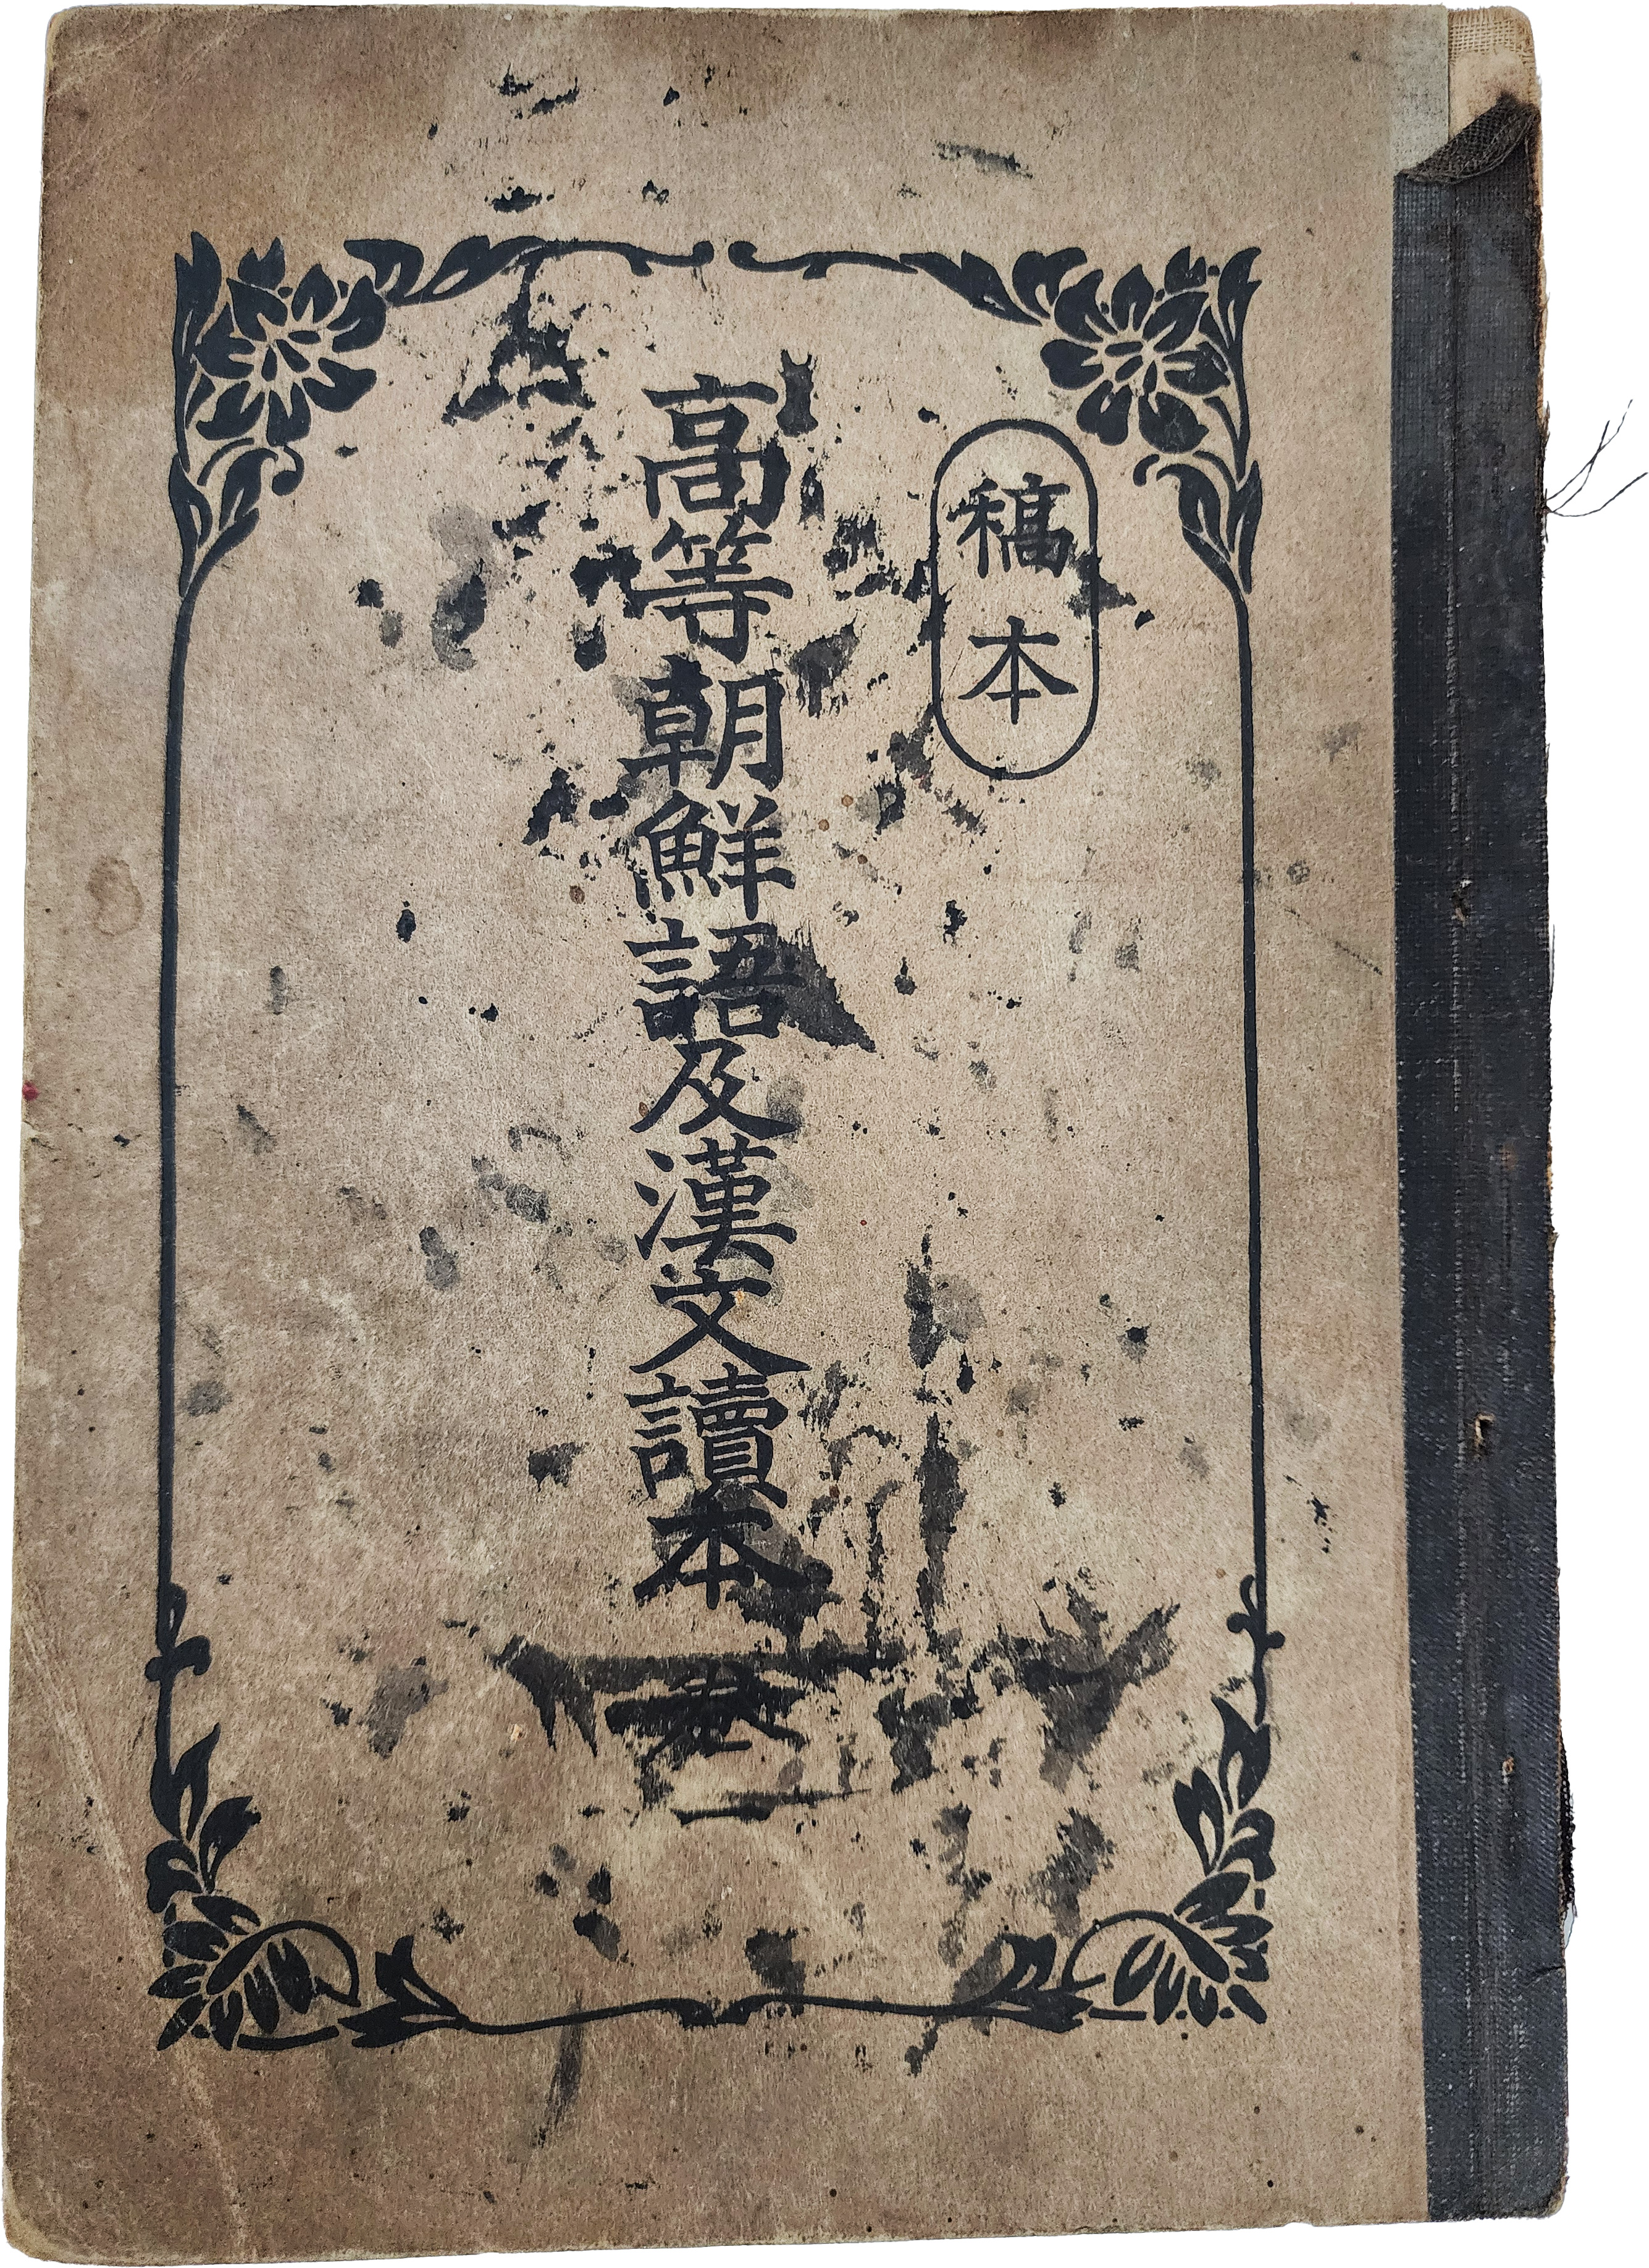 稿本
高等朝鮮語及漢文讀本 卷一